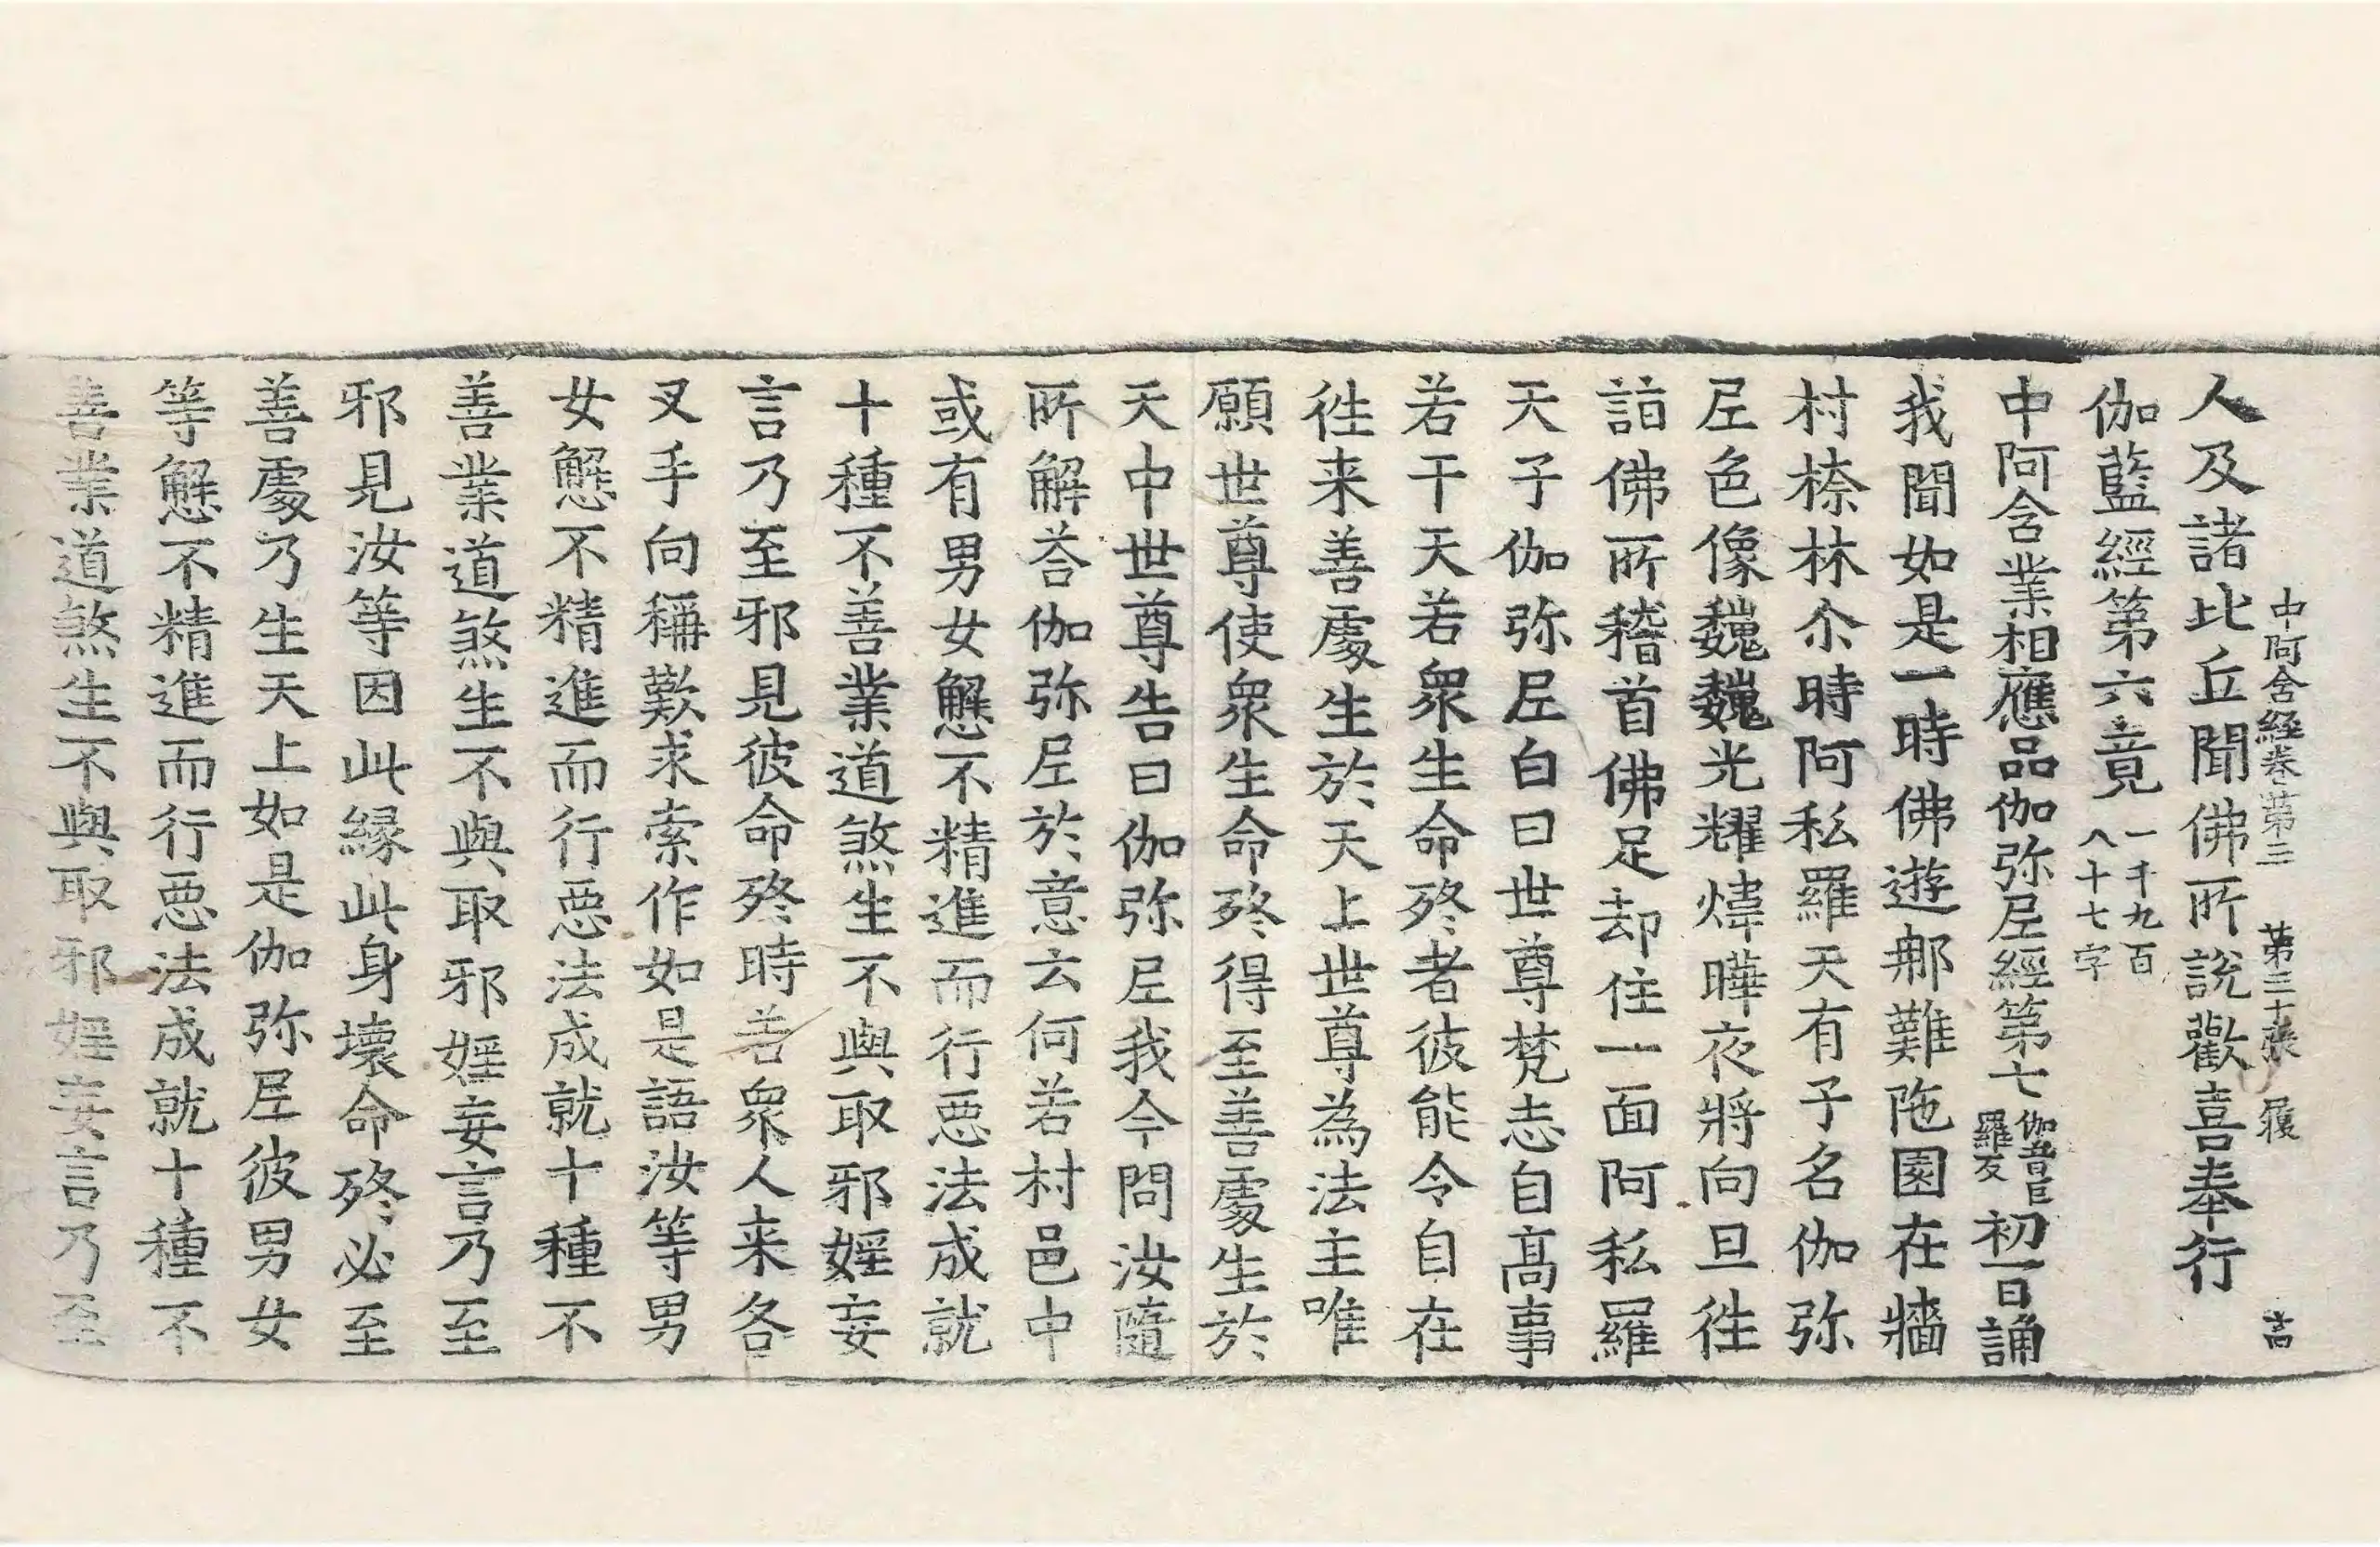 中阿含經卷第三　第三十張　履　言
人及諸比丘聞佛所說歡喜奉行
伽藍經第六竟一千九百八十七字
中阿含業相應品伽弥𡰱經第七伽音巨羅反初一日誦
我聞如是一時佛遊那難陁園在牆
村㮈林尒時阿私羅天有子名伽弥
𡰱色像巍巍光耀煒曄夜將向旦往
詣佛所稽首佛足却住一面阿私羅
天子伽弥𡰱白曰世尊梵志自高事
若干天若衆生命終者彼能令自在
往来善處生於天上世尊為法主唯
願世尊使衆生命終得至善處生於
天中世尊告曰伽弥𡰱我今問汝隨
所解荅伽弥𡰱於意云何若村邑中
或有男女懈不精進而行惡法成就
十種不善業道煞生不與取邪婬妄
言乃至邪見彼命終時若衆人来各
叉手向稱歎求索作如是語汝等男
女懈不精進而行惡法成就十種不
善業道煞生不與取邪婬妄言乃至
邪見汝等因此緣此身壞命終必至
善處乃生天上如是伽弥𡰱彼男女
等懈不精進而行惡法成就十種不
善業道煞生不與取邪婬妄言乃至